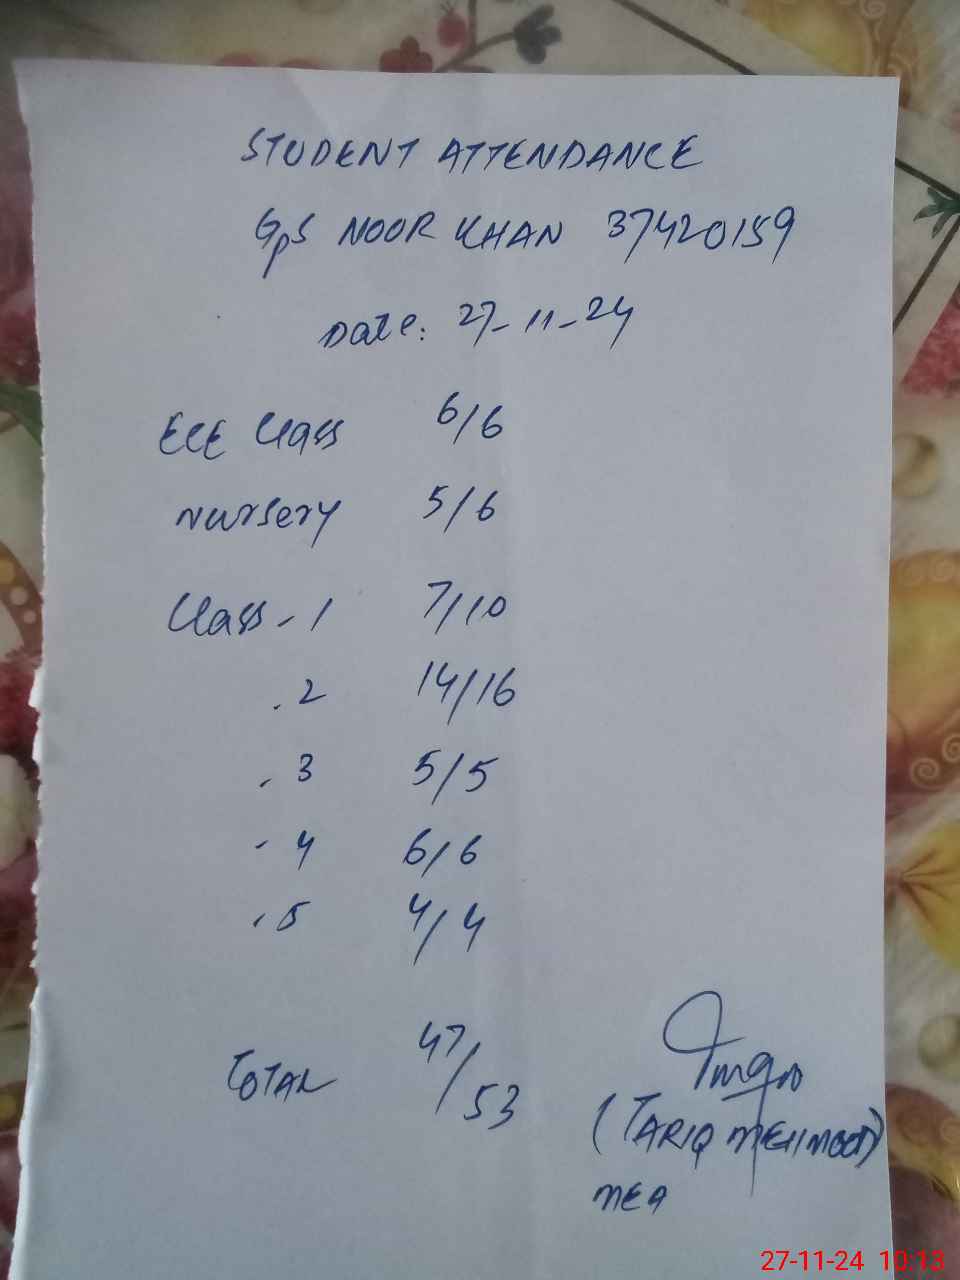 STUDENT ATTENDANCE
GPS NOOR KHAN 37420159
Date: 27-11-24
ECE Class 6/6
Nursery 5/6
Class - 1 7/10
. 2 14/16
. 3 5/5
- 4 6/6
. 5 4/4
TOTAL 47/53
(TARIQ MEHMOOD)
MEA
27-11-24 10:13